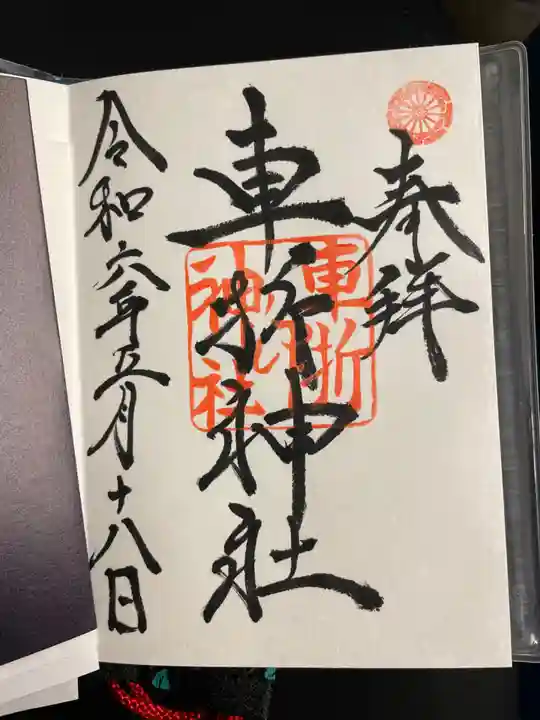 奉拝
車折神社
車折神社
令和六年五月十八日